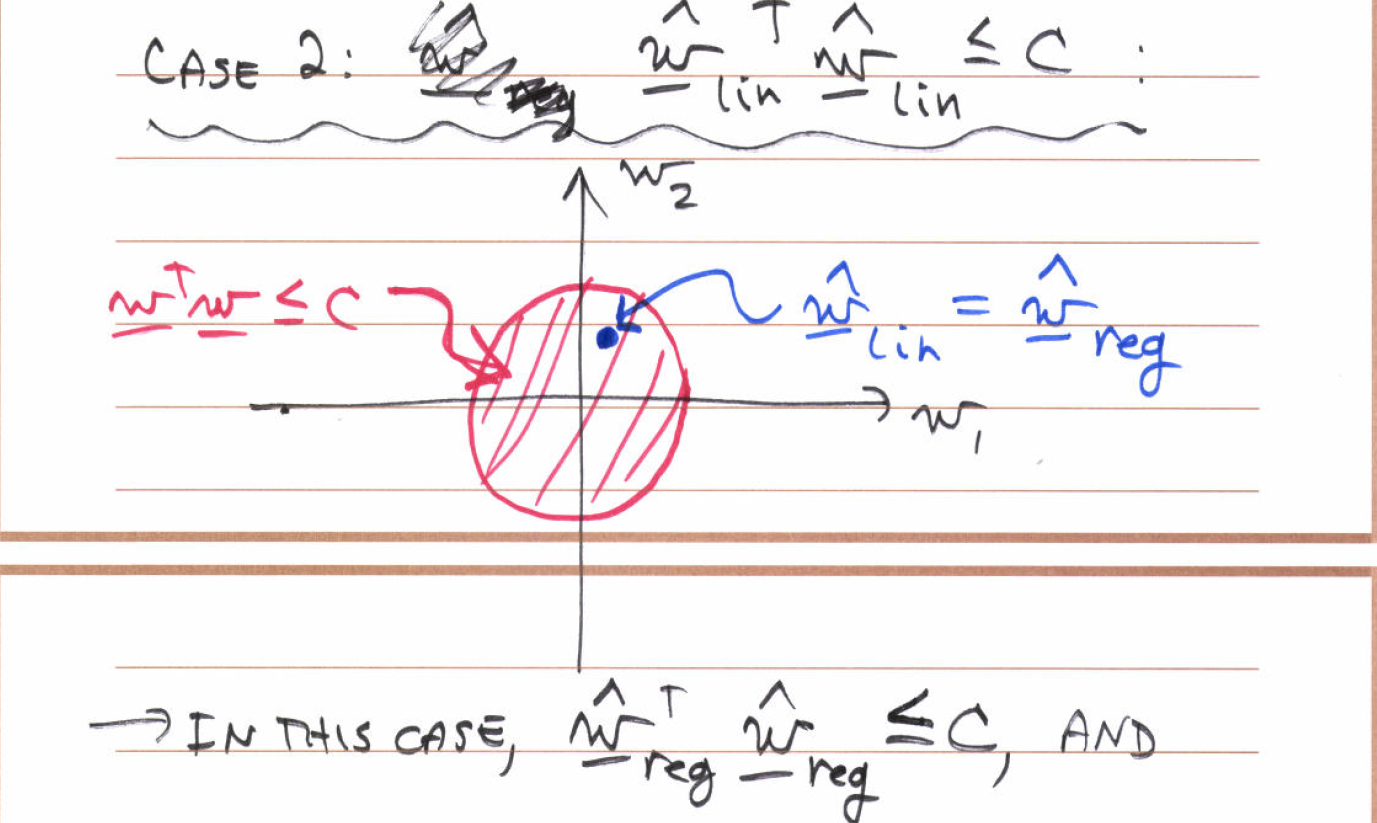 CASE 2: ŵ_lin^T ŵ_lin ≤ C :
w_2
w^T w ≤ C
ŵ_lin = ŵ_reg
w_1
→ IN THIS CASE, ŵ_reg^T ŵ_reg ≤ C, AND